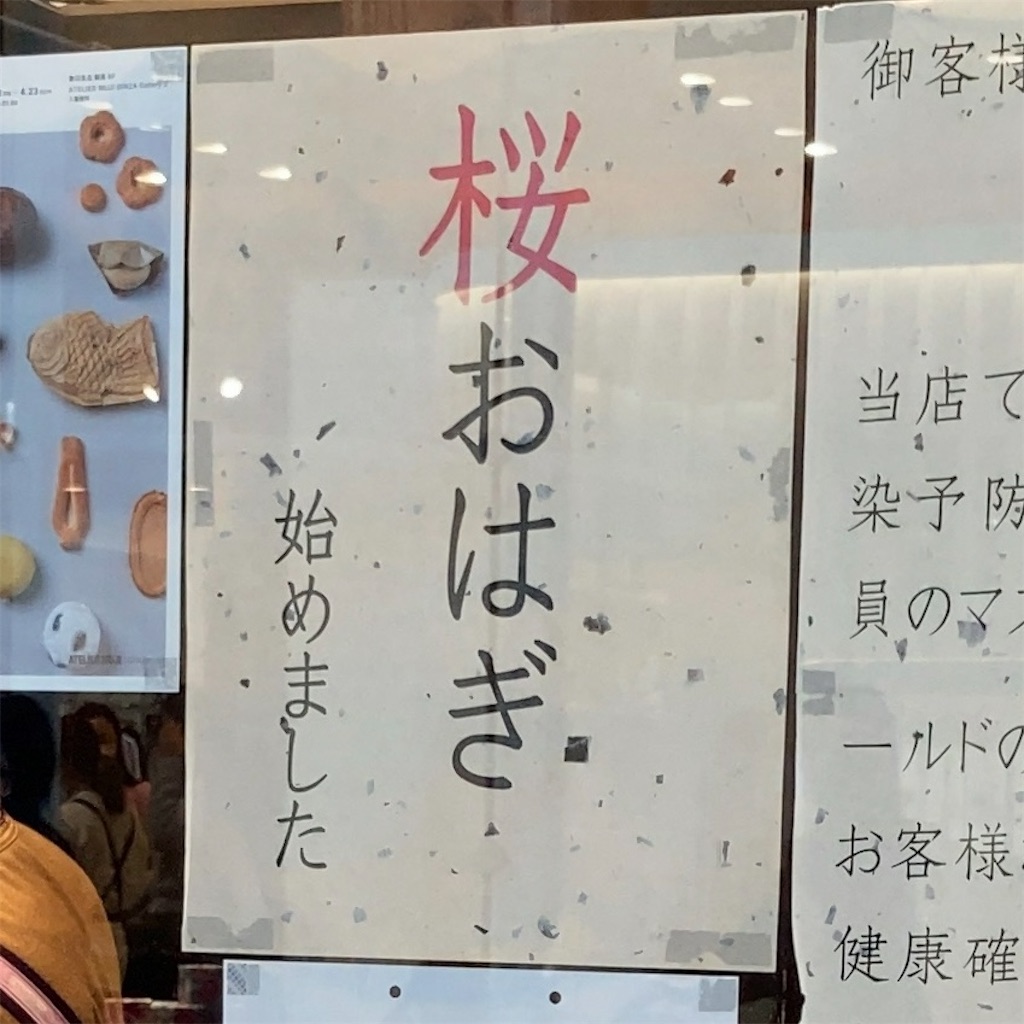 桜おはぎ
始めました
御客様
当店で
染予防
員のマス
ールドの
お客様
健康確
4.23
ATELIER MUJI GINZA Gallery